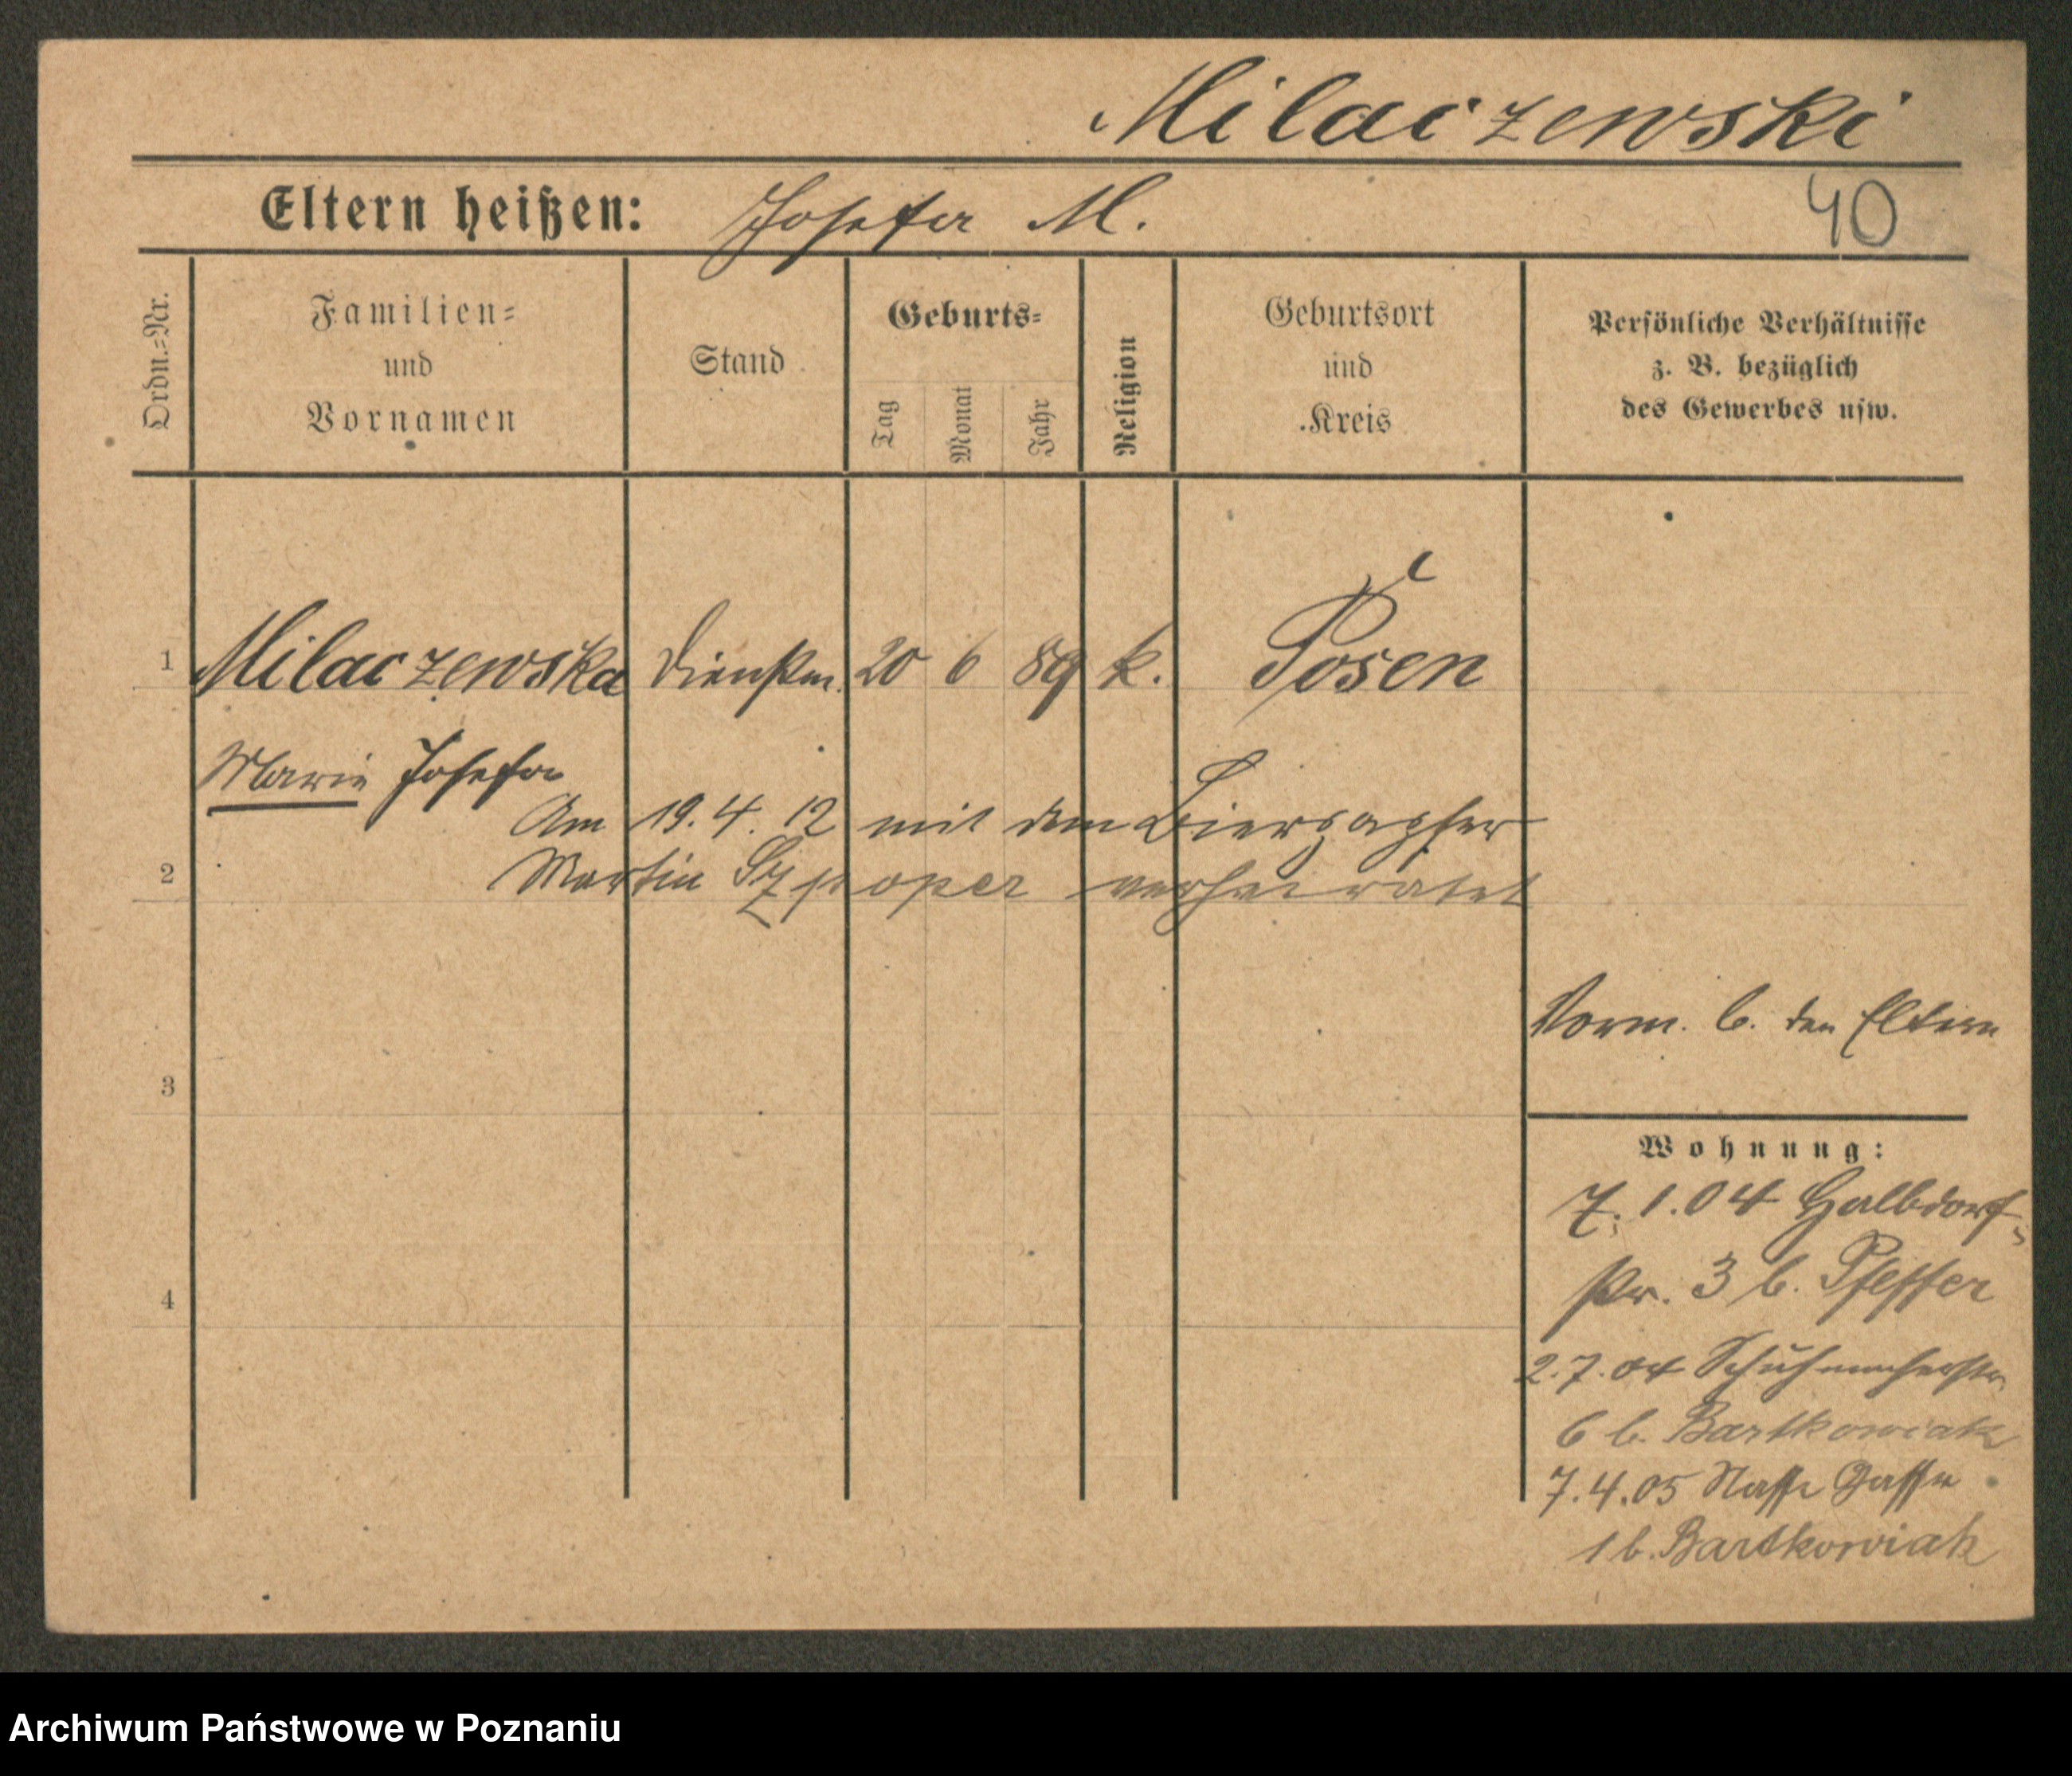 Milaczewski
Eltern heißen: Josefa M.
40
Ordn.=Nr.
Familien=
und
Vornamen
Stand
Geburts=
Tag
Monat
Jahr
Religion
Geburtsort
und
Kreis
Persönliche Verhältnisse
z. B. bezüglich
des Gewerbes usw.
1 Milaczewska Dienstm. 20 6 89 k. Posen
Marie Josefa
Am 19.4.12 mit dem Bierzapfer
2 Martin verheiratet
Vorm. b. den Eltern
3
Wohnung:
7.1.04 Halbdorf-
str. 3 b. Pfeffer
4
2.7.04 Schuhmacherstr.
6 b. Bartkowiak
7.4.05 Nasse Gasse
1 b. Bartkowiak
Archiwum Państwowe w Poznaniu